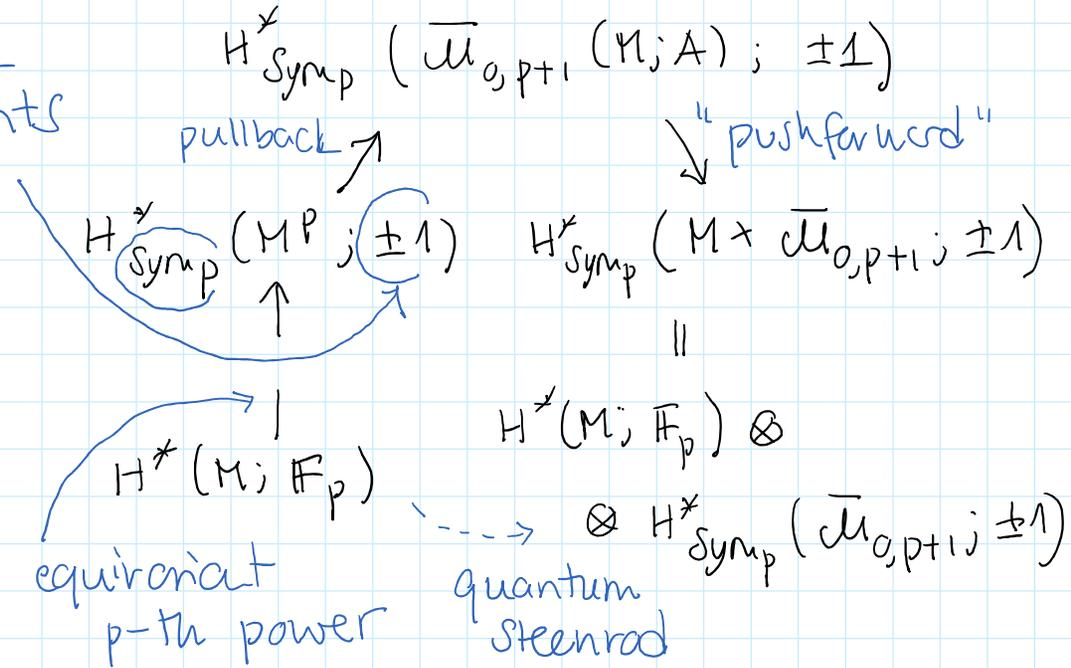 H*_Symp ( M̄_0,p+1 (M; A) ; ±1)
nts
pullback ↗
↘ "pushforward"
H*_Symp (M^p ; ±1)
H*_Symp ( M × M̄_0,p+1 ; ±1)
↑
||
H* (M; 𝔽_p) ⊗
H* (M; 𝔽_p)
⊗ H*_Symp ( M̄_0,p+1 ; ±1)
equivariat
p-th power
quantum
steenrod